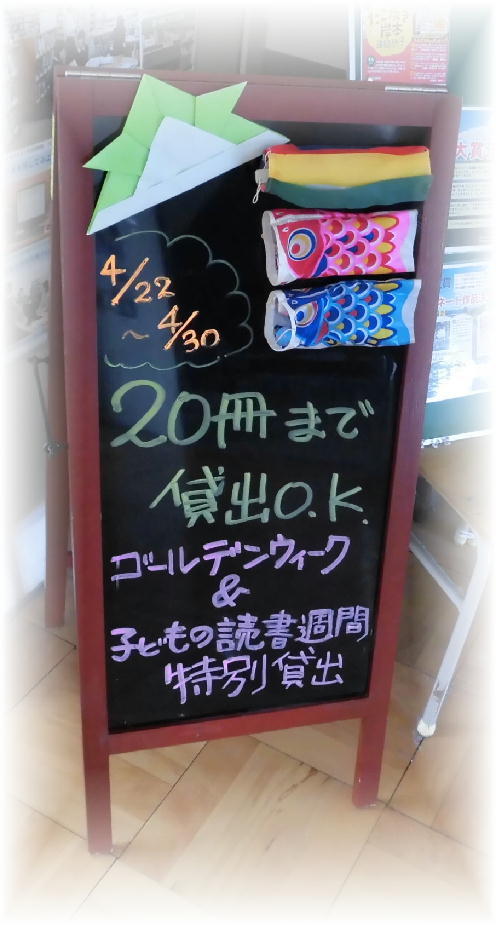 4/22
～4/30
20冊まで
貸出O.K.
ゴールデンウィーク
&
子どもの読書週間
特別貸出